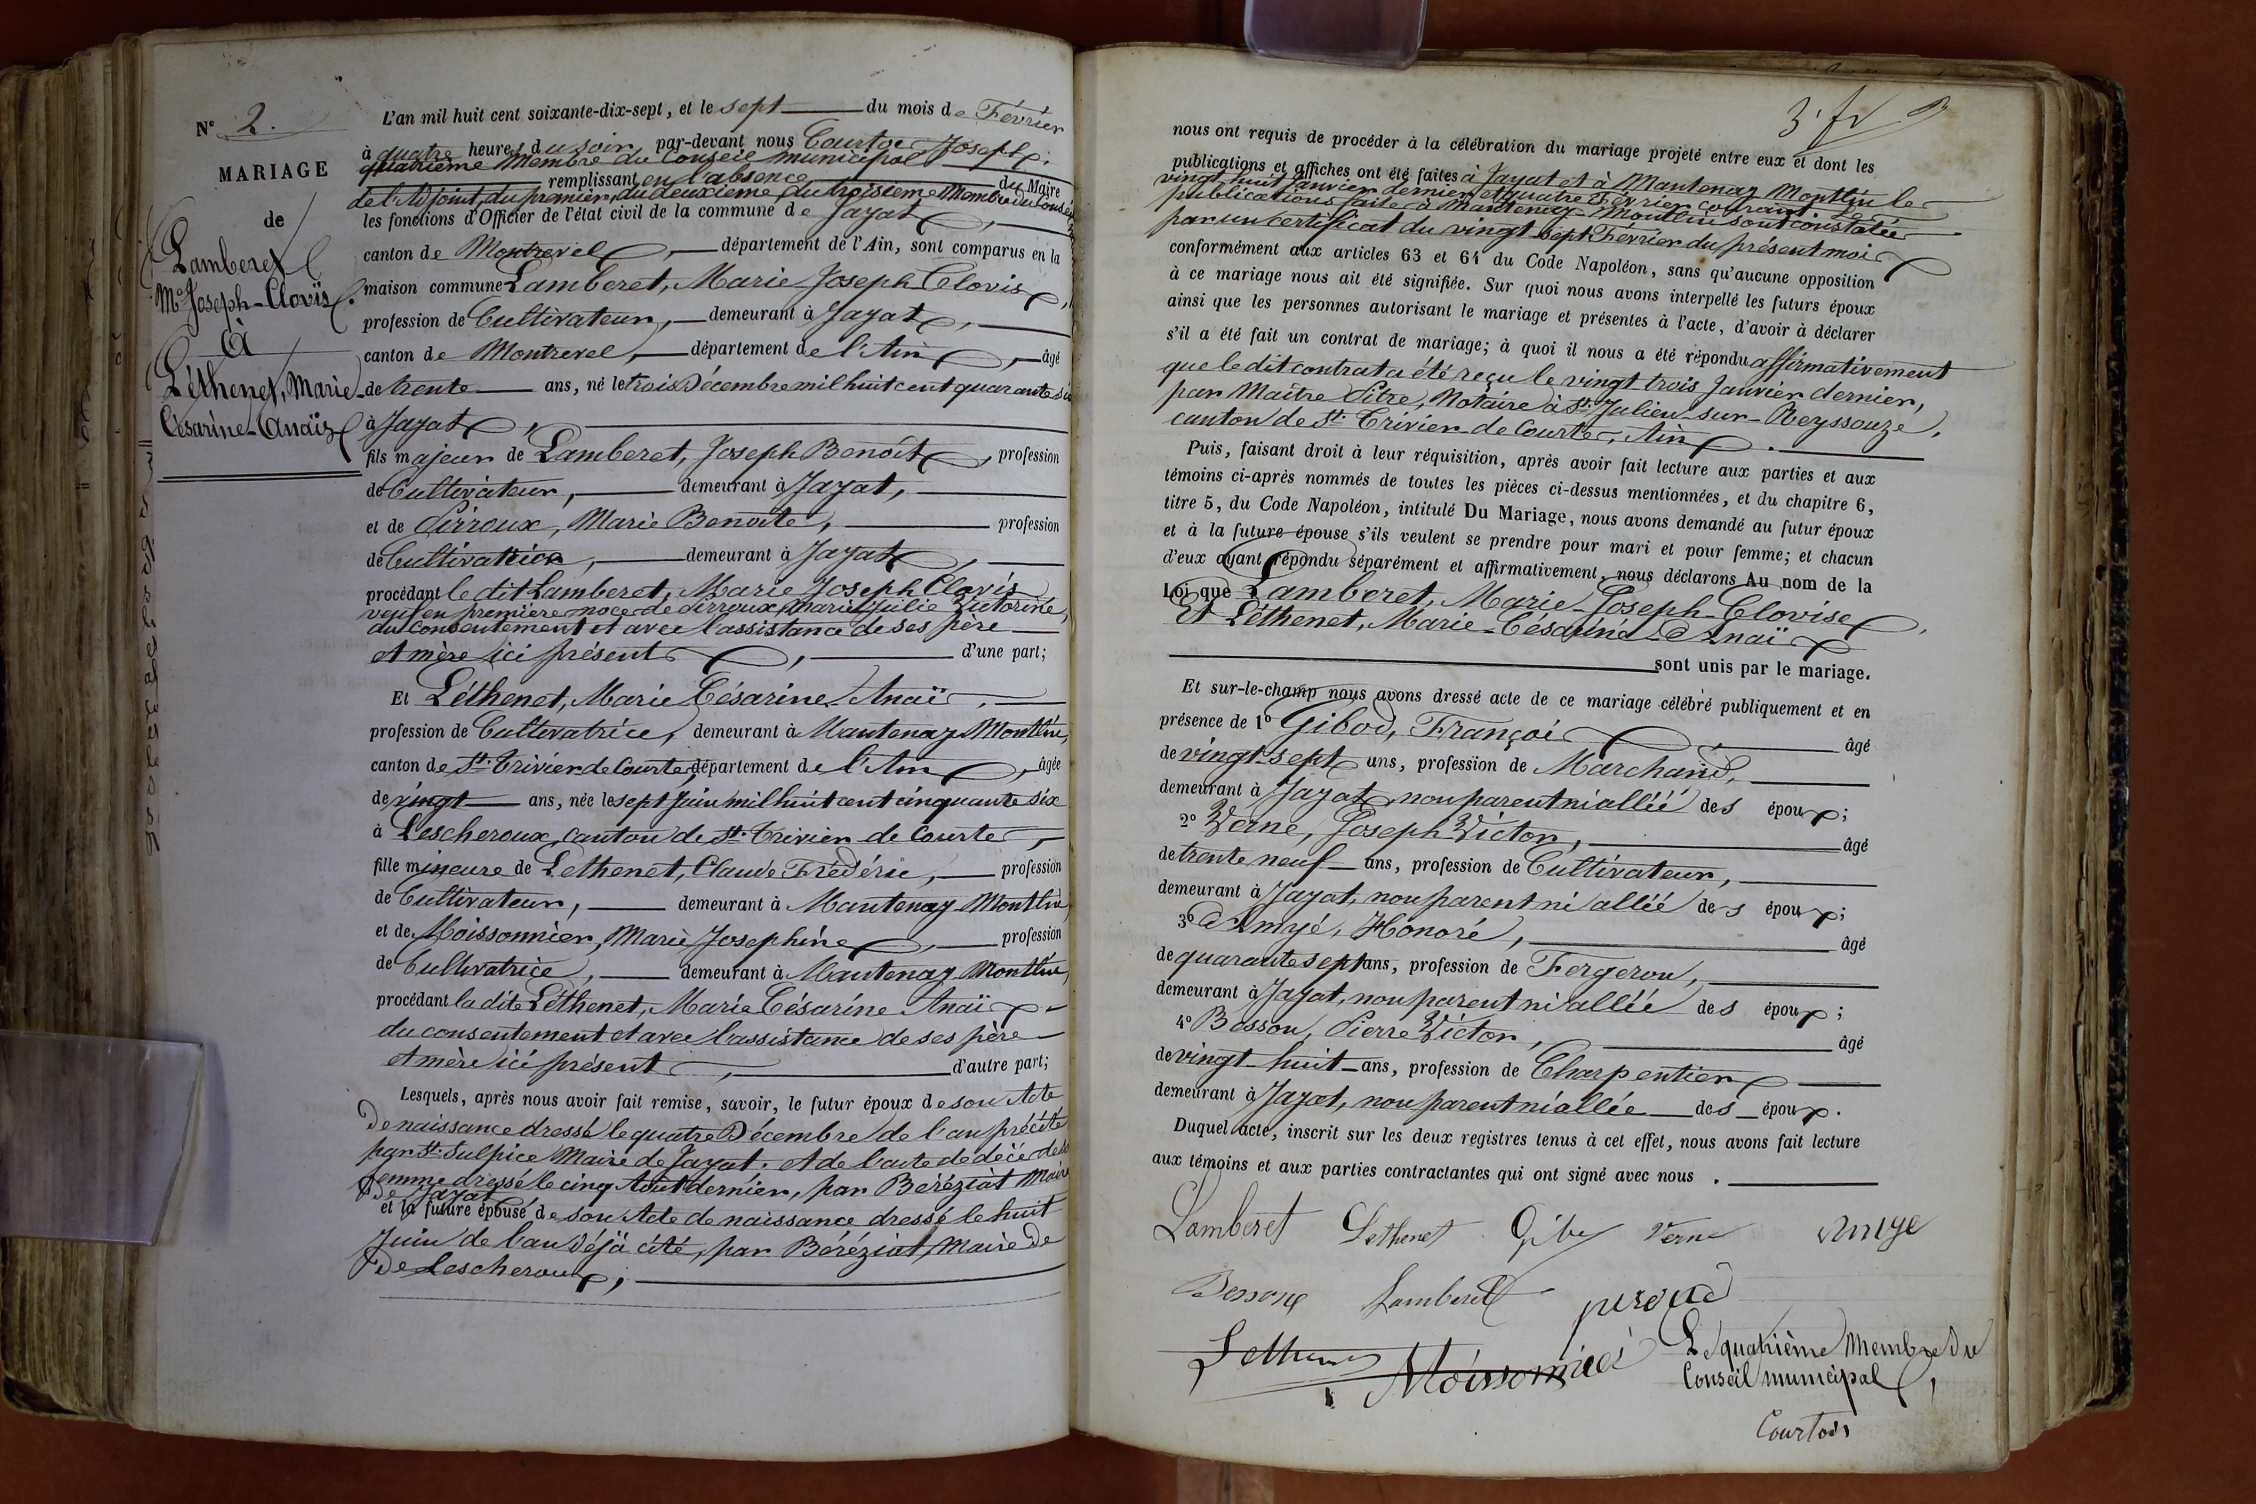 N° 2.
MARIAGE
de
Lamberet
Me Joseph-Clovis
À
Léthenet, Marie
Césarine-Anaïs
L'an mil huit cent soixante-dix-sept, et le sept du mois de Février
à quatre heures du soir par-devant nous Courtois, Joseph,
quatrième Membre du Conseil municipal
remplissant en l'absence du Maire
de l'Adjoint, du premier, du deuxieme, du troisieme Membre du Conseil
les fonctions d'Officier de l'état civil de la commune de Jayat,
canton de Montrevel, département de l'Ain, sont comparus en la
maison commune Lamberet, Marie-Joseph Clovis,
profession de Cultivateur, demeurant à Jayat,
canton de Montrevel, département de l'Ain, âgé
de trente ans, né le trois Décembre mil huit cent quarante six
à Jayat,
fils majeur de Lamberet, Joseph Benoit, profession
de Cultivateur, demeurant à Jayat,
et de Pirroux, Marie Benoite, profession
de Cultivatrice, demeurant à Jayat,
procédant le dit Lamberet, Marie Joseph Clovis
veuf en premiere noce de Pirroux, Marie Julie Victorine,
du consentement et avec l'assistance de ses père
et mère ici présent, d'une part;
Et Léthenet, Marie Césarine Anaï,
profession de Cultivatrice, demeurant à Mantenay Montlin,
canton de St. Trivier de Courte, département de l'Ain, âgée
de vingt ans, née le sept Juin mil huit cent cinquante six
à Lescheroux, canton de St. Trivier de Courte,
fille mineure de Lethenet, Claude Frédéric, profession
de Cultivateur, demeurant à Mantenay Montlin
et de Moissonnier, Marie Josephine, profession
de Cultivatrice, demeurant à Mantenay Montlin,
procédant la dite Léthenet, Marie Césarine Anaï
du consentement et avec l'assistance de ses père
et mère ici présent, d'autre part;
Lesquels, après nous avoir fait remise, savoir, le futur époux de son Acte
De naissance dressé le quatre Décembre de l'an précité
par St. Sulpice Maire de Jayat. et de l'acte de décé de sa
femme dressé le cinq Aout dernier, par Béréziat Maire
De Jayat
et la future épouse de son Acte de naissance dressé le huit
Juin de l'an déjà cité, par Béréziat, Maire De
De Lescheroux,;
3. fr
nous ont requis de procéder à la célébration du mariage projeté entre eux et dont les
publications et affiches ont été faites à Jayat et à Mantenay Montlin le
vingt huit Janvier dernier et quatre Février courant. Les
publications faite à Mantenay-Montlin sont constatée
par un certificat du vingt sept Février du présent moi
conformément aux articles 63 et 64 du Code Napoléon, sans qu'aucune opposition
à ce mariage nous ait été signifiée. Sur quoi nous avons interpellé les futurs époux
ainsi que les personnes autorisant le mariage et présentes à l'acte, d'avoir à déclarer
s'il a été fait un contrat de mariage; à quoi il nous a été répondu affirmativement
que le dit contrat a été reçu le vingt trois Janvier dernier,
par Maître Pitre, Notaire à St. Julien-sur-Reyssouze,
canton de St. Trivier-de Courte, Ain.
Puis, faisant droit à leur réquisition, après avoir fait lecture aux parties et aux
témoins ci-après nommés de toutes les pièces ci-dessus mentionnées, et du chapitre 6,
titre 5, du Code Napoléon, intitulé Du Mariage, nous avons demandé au futur époux
et à la future épouse s'ils veulent se prendre pour mari et pour femme; et chacun
d'eux ayant répondu séparément et affirmativement, nous déclarons Au nom de la
Loi que Lamberet, Marie-Joseph-Clovise,
Et Léthenet, Marie-Césarine-Anaï
sont unis par le mariage.
Et sur-le-champ nous avons dressé acte de ce mariage célébré publiquement et en
présence de 1° Gibod, Françoi, âgé
de vingt-sept ans, profession de Marchand,
demeurant à Jayat, non parent ni alléé des époux;
2° Verne, Joseph Victor, âgé
de trente neuf ans, profession de Cultivateur,
demeurant à Jayat, non parent ni alléé des époux;
3° Amyé, Honoré, âgé
de quarante sept ans, profession de Fergeron,
demeurant à Jayat, non parent ni alléé des époux;
4° Besson, Pierre Victor, âgé
de vingt-huit ans, profession de Charpentier
demeurant à Jayat, non parent ni allée des époux.
Duquel acte, inscrit sur les deux registres tenus à cet effet, nous avons fait lecture
aux témoins et aux parties contractantes qui ont signé avec nous.
Lamberet Lethenet Verne
Lamberet
Le quatrième Membre du
Conseil municipal,
Courtois